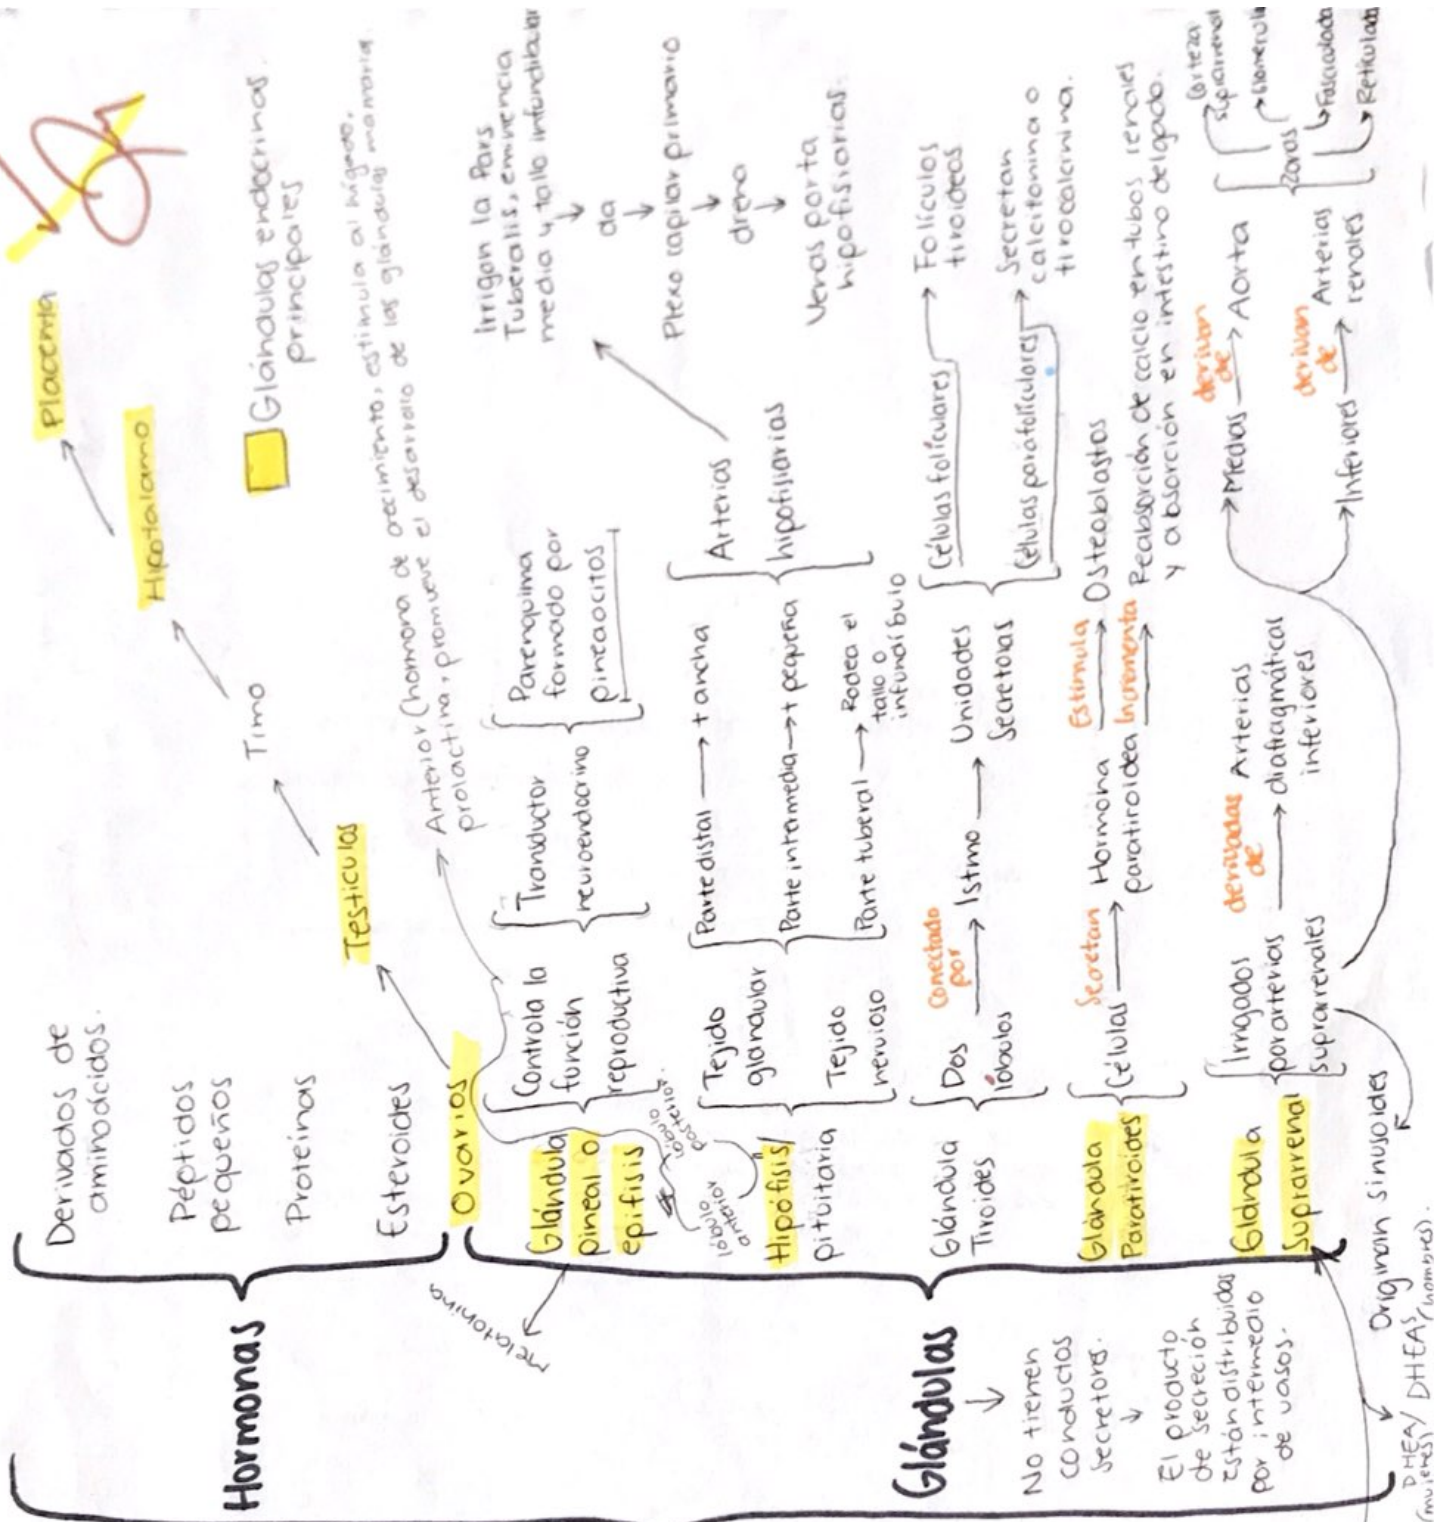 Hormonas
Derivados de
aminoácidos.
Péptidos
pequeños
Proteínas
Esteroides
Glándulas
No tienen
conductos
secretores.
El producto
de secreción
están distribuidas
por intermedio
de vasos.
Ovarios
Testículos
Timo
Hipotalamo
Placenta
Glándulas endocrinas
principales
melatonina
Glándula
pineal o
epífisis
Controla la
función
reproductiva
Transductor
neuroendocrino
Parenquima
formado por
pineaocitos
lóbulo
anterior
lóbulo
posterior.
Anterior (hormona de crecimiento, estimula al hígado,
prolactina, promueve el desarrollo de las glándulas mamaria.
Hipófisis/
pituitaria
Tejido
glandular
Tejido
nervioso
Parte distal → + ancha
Parte intermedia → + pequeña
Parte tuberal → Rodea el
tallo o
infundíbulo
Arterias
hipofisiarias
Irrigan la Pars
Tuberalis, eminencia
media y tallo infundibular
da
Plexo capilar primario
drena
Venas porta
hipofisiarias.
Glándula
Tiroides
Dos
lóbulos
conectado
por
Istmo
Unidades
Secretoras
Células foliculares
Folículos
tiroideos
Células parafoliculares
Secretan
calcitonina o
tirocalcinina.
Glándula
Paratiroides
Células
Secretan
Hormona
paratiroidea
Estimula
Osteoblastos
Incrementa
Reabsorción de calcio en tubos renales
y absorción en intestino delgado.
Glándula
Suprarrenal
Irrigados
por arterias
suprarrenales
derivadas
de
Arterias
diafragmáticas
inferiores
Medias
derivan
de
Aorta
Inferiores
derivan
de
Arterias
renales
Zonas
Corteza
suprarrenal
Glomerul
Fasciculada
Reticulada
Originan sinusoides
DHEA/ DHEAS
(mujeres) (hombres).